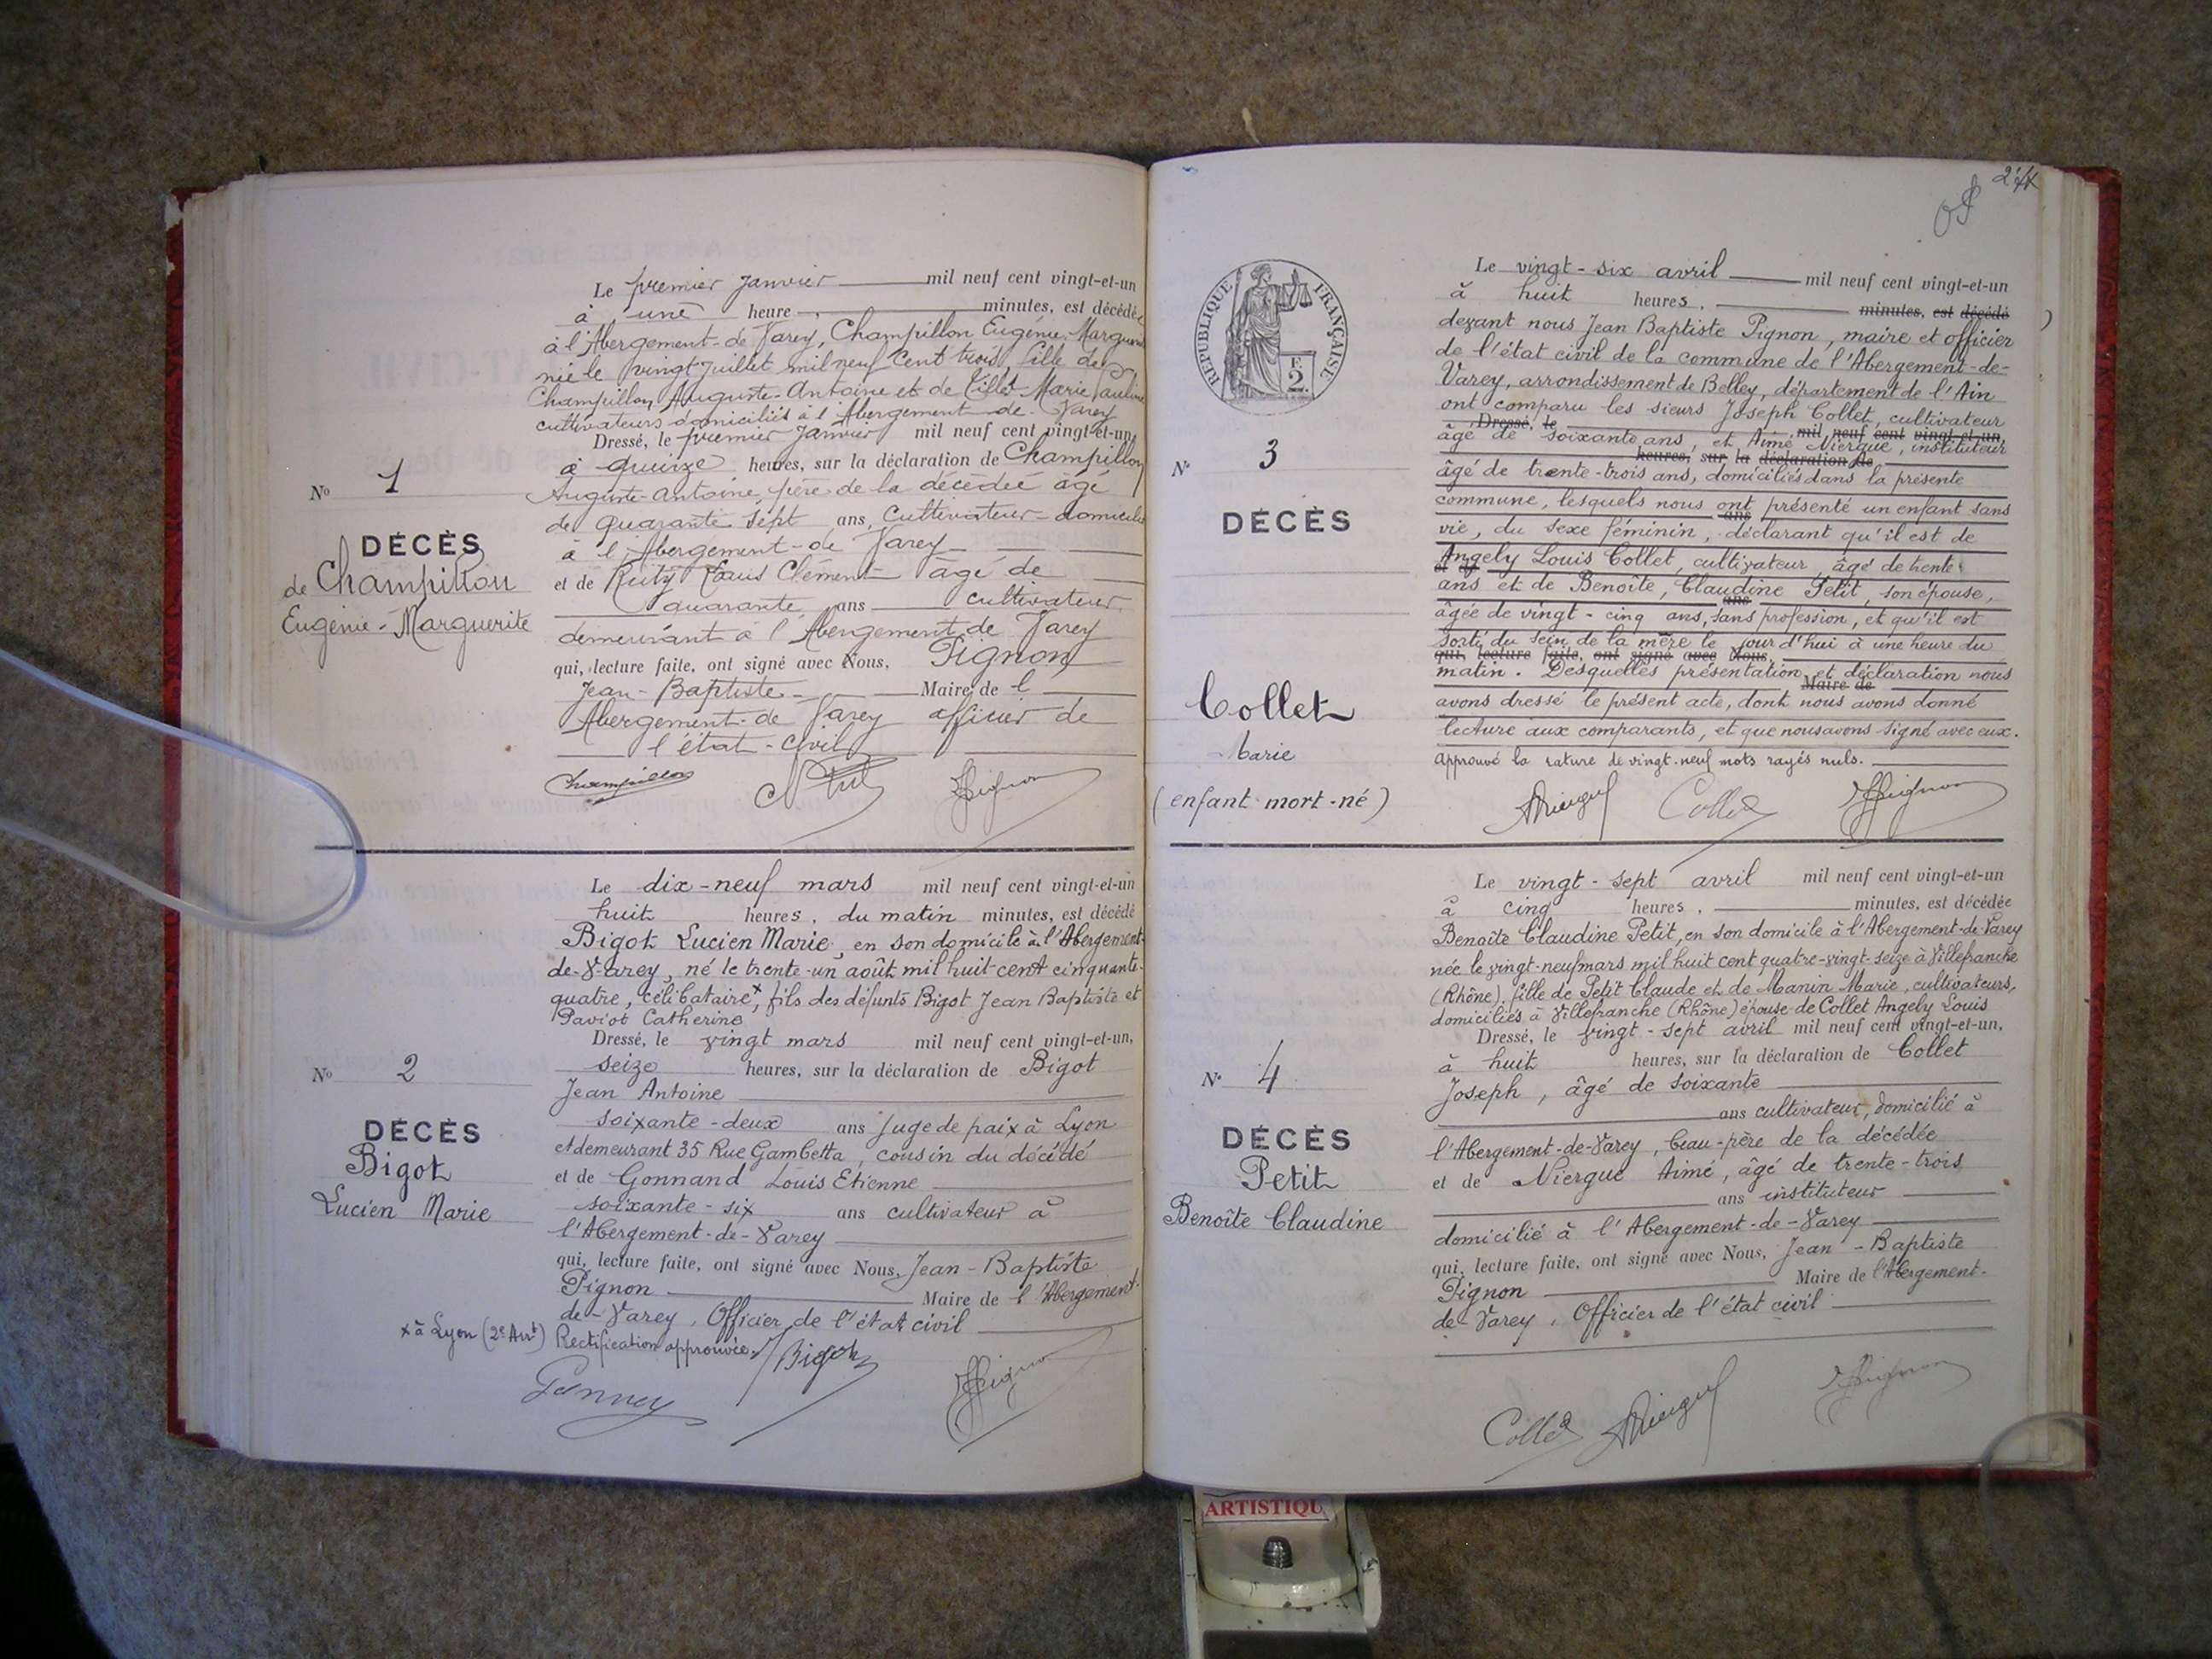 Le premier janvier mil neuf cent vingt-et-un
à une heure minutes, est décédée
à l'Abergement-de Varey, Champillon Eugénie-Marguerite
née le vingt juillet mil neuf Cent trois, fille de
Champillon Auguste-Antoine et de Tillet Marie Pauline
cultivateurs domiciliés à l'Abergement-de-Varey
Dressé, le premier janvier mil neuf cent vingt-et-un,
à quinze heures, sur la déclaration de Champillon
Auguste-Antoine, père de la décédée âgé
de quarante sept ans, Cultivateur-domicilié
à l'Abergement-de Varey
et de Louis Clément âgé de
quarante ans cultivateur
demeurant à l'Abergement de Varey
qui, lecture faite, ont signé avec Nous, Pignon
Jean-Baptiste Maire de l
Abergement-de Varey officier de
l'état-civil
Champillon
JBPignon
No 1
DÉCÈS
de Champillon
Eugénie-Marguerite
Le dix-neuf mars mil neuf cent vingt-et-un
huit heures, du matin minutes, est décédé
Bigot Lucien Marie, en son domicile à l'Abergement-
de-Varey, né le trente-un août mil huit-cent cinquante-
quatre, célibataire x, fils des défunts Bigot Jean Baptiste et
Paviot Catherine
Dressé, le vingt mars mil neuf cent vingt-et-un,
seize heures, sur la déclaration de Bigot
Jean Antoine
soixante-deux ans juge de paix à Lyon
et demeurant 35 Rue Gambetta, cousin du décédé
et de Gonnand Louis Etienne
soixante-six ans cultivateur à
l'Abergement-de-Varey
qui, lecture faite, ont signé avec Nous, Jean-Baptiste
Pignon Maire de l'Abergement-
de-Varey, Officier de l'état civil
x à Lyon (2e Arrt) Rectification approuvée.
Bigot
JBPignon
No 2
DÉCÈS
Bigot
Lucien Marie
RÉPUBLIQUE FRANÇAISE
E
2.
Le vingt-six avril mil neuf cent vingt-et-un
à huit heures, minutes, est décédé
devant nous Jean Baptiste Pignon, maire et officier
de l'état civil de la commune de l'Abergement-de-
Varey, arrondissement de Belley, département de l'Ain
ont comparu les sieurs Joseph Collet, cultivateur
Dressé, le mil neuf cent vingt-et-un,
âgé de soixante ans, et Aimé Niergue, instituteur
heures, sur la déclaration de
âgé de trente-trois ans, domiciliés dans la présente
commune, lesquels nous ont présenté un enfant sans
ans
vie, du sexe féminin, déclarant qu'il est de
Angely Louis Collet, cultivateur, âgé de trente
et de
ans et de Benoîte, Claudine Petit, son épouse,
ans
âgée de vingt-cinq ans, sans profession, et qu'il est
sorti du sein de la mère le jour d'hui à une heure du
qui, lecture faite, ont signé avec Nous,
matin. Desquelles présentation et déclaration nous
Maire de
avons dressé le présent acte, dont nous avons donné
lecture aux comparants, et que nous avons signé avec eux.
Approuvé la rature de vingt-neuf mots rayés nuls.
ANiergue
Collet
JBPignon
No 3
DÉCÈS
Collet
Marie
(enfant mort-né)
Le vingt-sept avril mil neuf cent vingt-et-un
à cinq heures, minutes, est décédée
Benoîte Claudine Petit, en son domicile à l'Abergement-de-Varey
née le vingt-neuf mars mil huit cent quatre-vingt-seize à Villefranche
(Rhône), fille de Petit Claude et de Manin Marie, cultivateurs,
domiciliés à Villefranche (Rhône) épouse de Collet Angely Louis
Dressé, le vingt-sept avril mil neuf cent vingt-et-un,
à huit heures, sur la déclaration de Collet
Joseph, âgé de soixante
ans cultivateur, domicilié à
l'Abergement-de-Varey, beau-père de la décédée
et de Niergue Aimé, âgé de trente-trois
ans instituteur
domicilié à l'Abergement-de-Varey
qui, lecture faite, ont signé avec Nous, Jean-Baptiste
Pignon Maire de l'Abergement-
de-Varey, Officier de l'état civil
Collet
ANiergue
JBPignon
No 4
DÉCÈS
Petit
Benoîte Claudine
ARTISTIQU